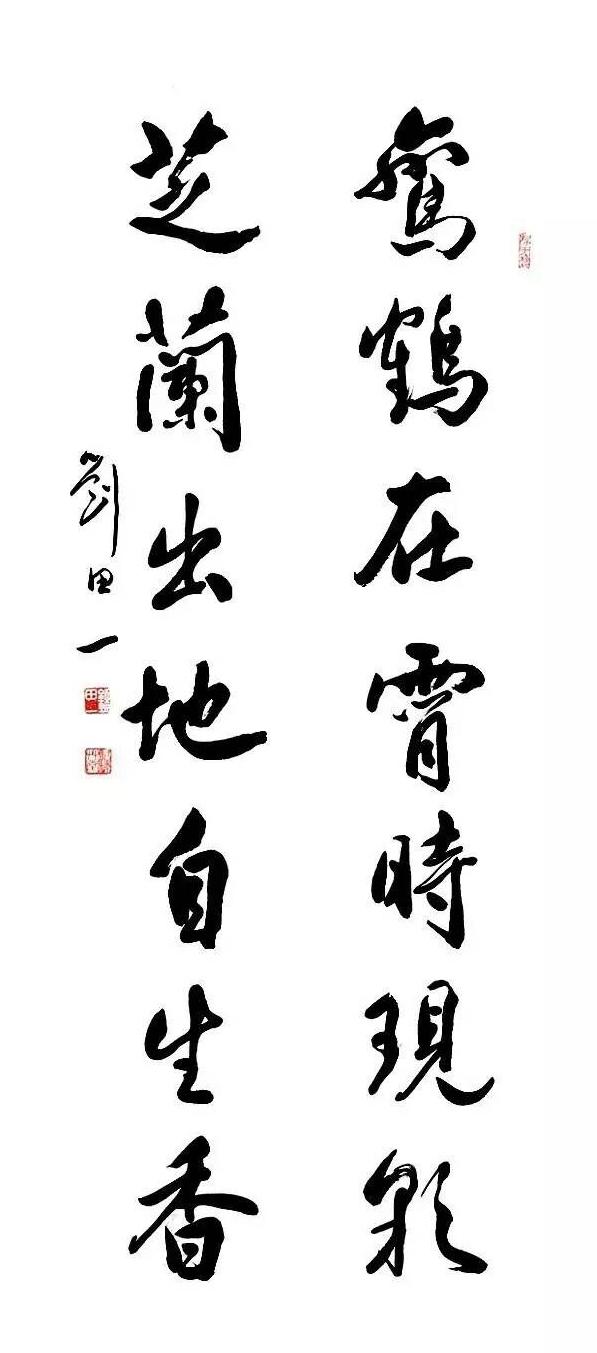 鸞鶴在霄時現
芝蘭出地自生香
劉田一